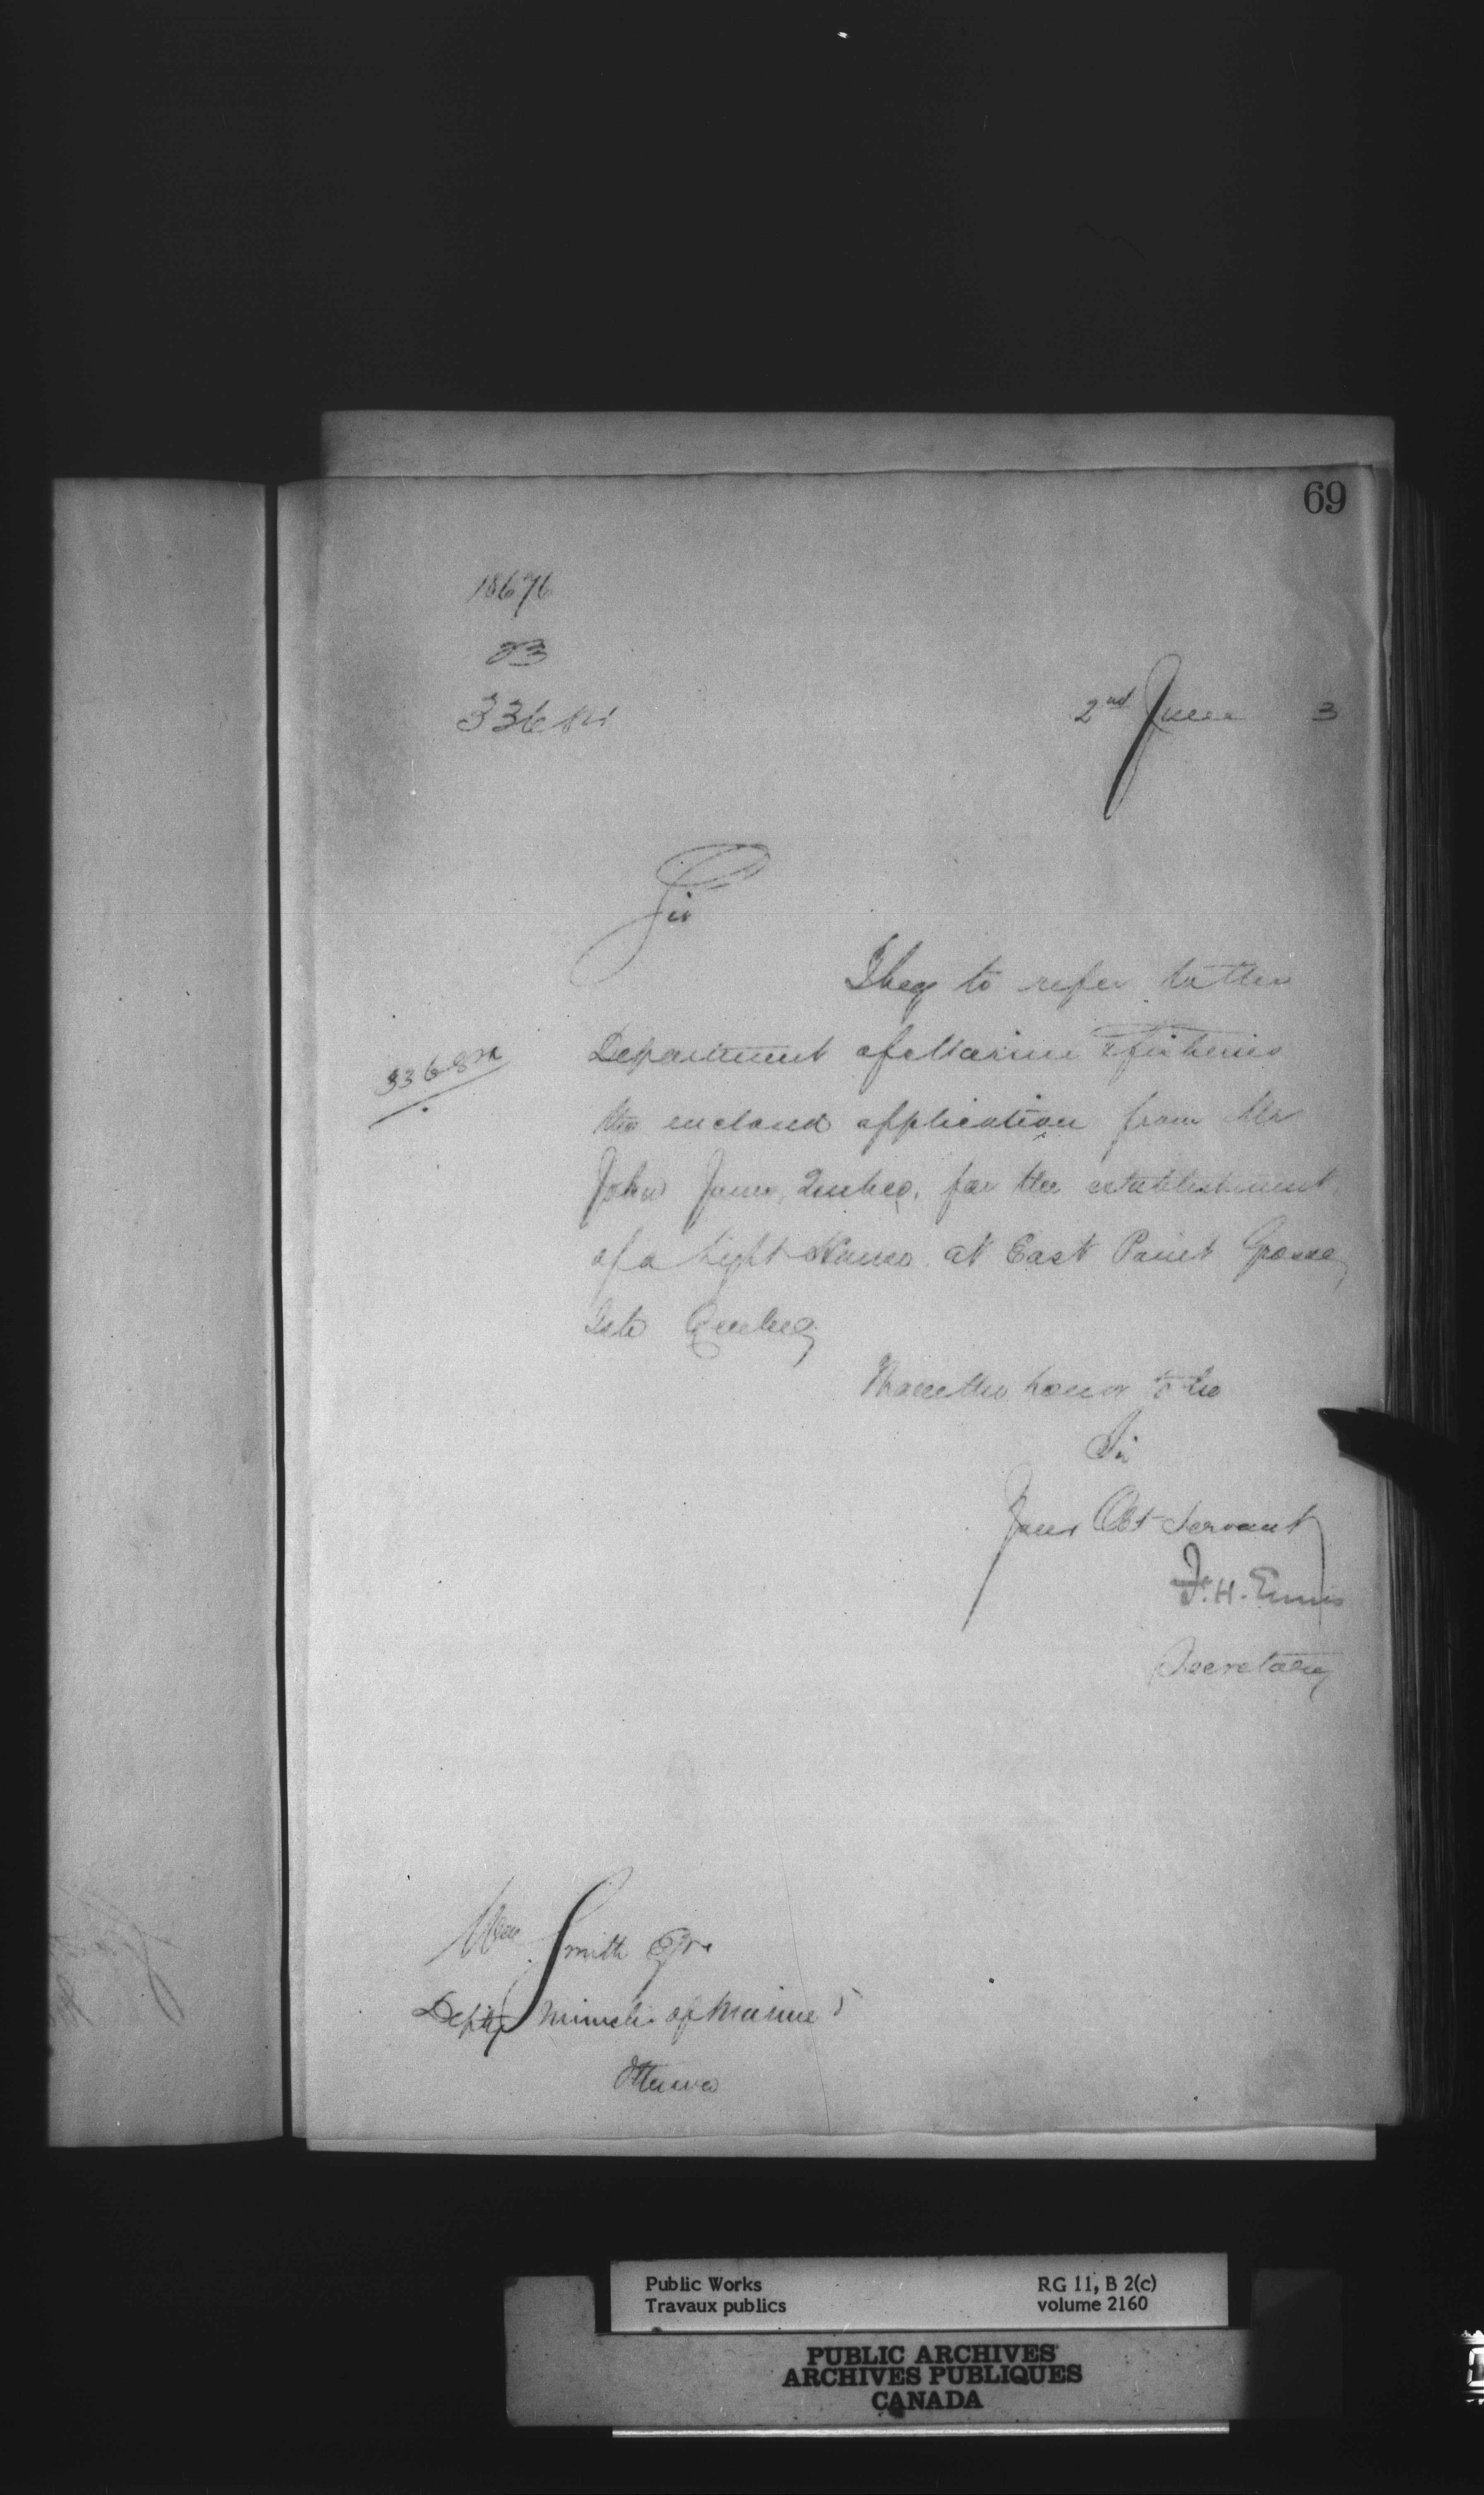 69
18676
33682
2nd June 3
Sir
I beg to refer to the
Department of Marine & Fisheries
33682
the enclosed application from Mr
John Jones, Quebec, for the establishment
of a Light House at East Point Grosse
Isle Quebec
I have the honor to be
Sir
Your Obt Servant
F. H. Ennis
Secretary
Wm Smith Esqre
Depty Minister of Marine
Ottawa
Public Works
Travaux publics
RG 11, B 2(c)
volume 2160
PUBLIC ARCHIVES
ARCHIVES PUBLIQUES
CANADA